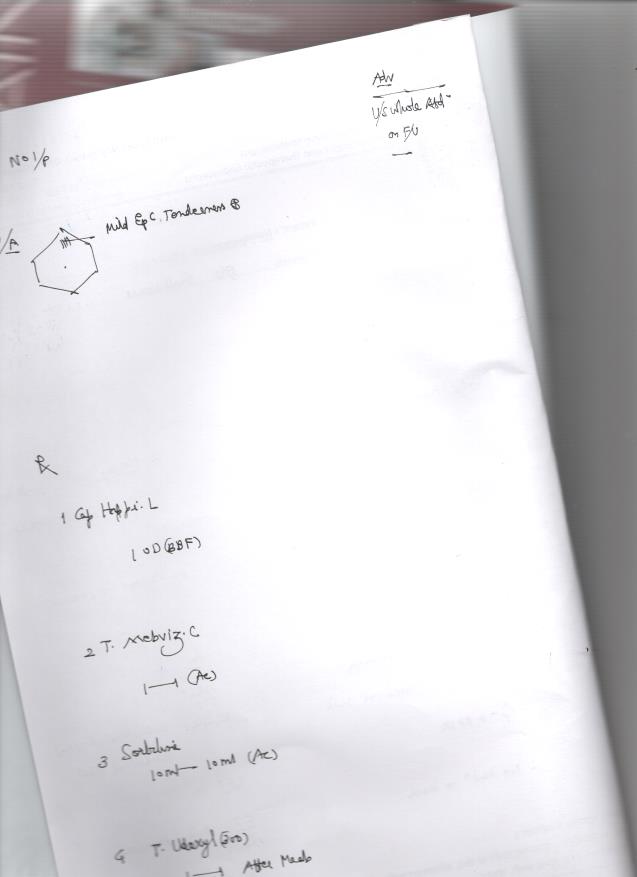 Adv
U/S whole Abd
on F/U
No I/P
/A
Mild Ep C. Tenderness ⊕
℞
1 Cap Happi. L
1 OD (BBF)
2 T. Mebviz. C
1—1 (Ac)
3
10ml — 10ml (Ac)
4 T. (300)
1—1 After Meals